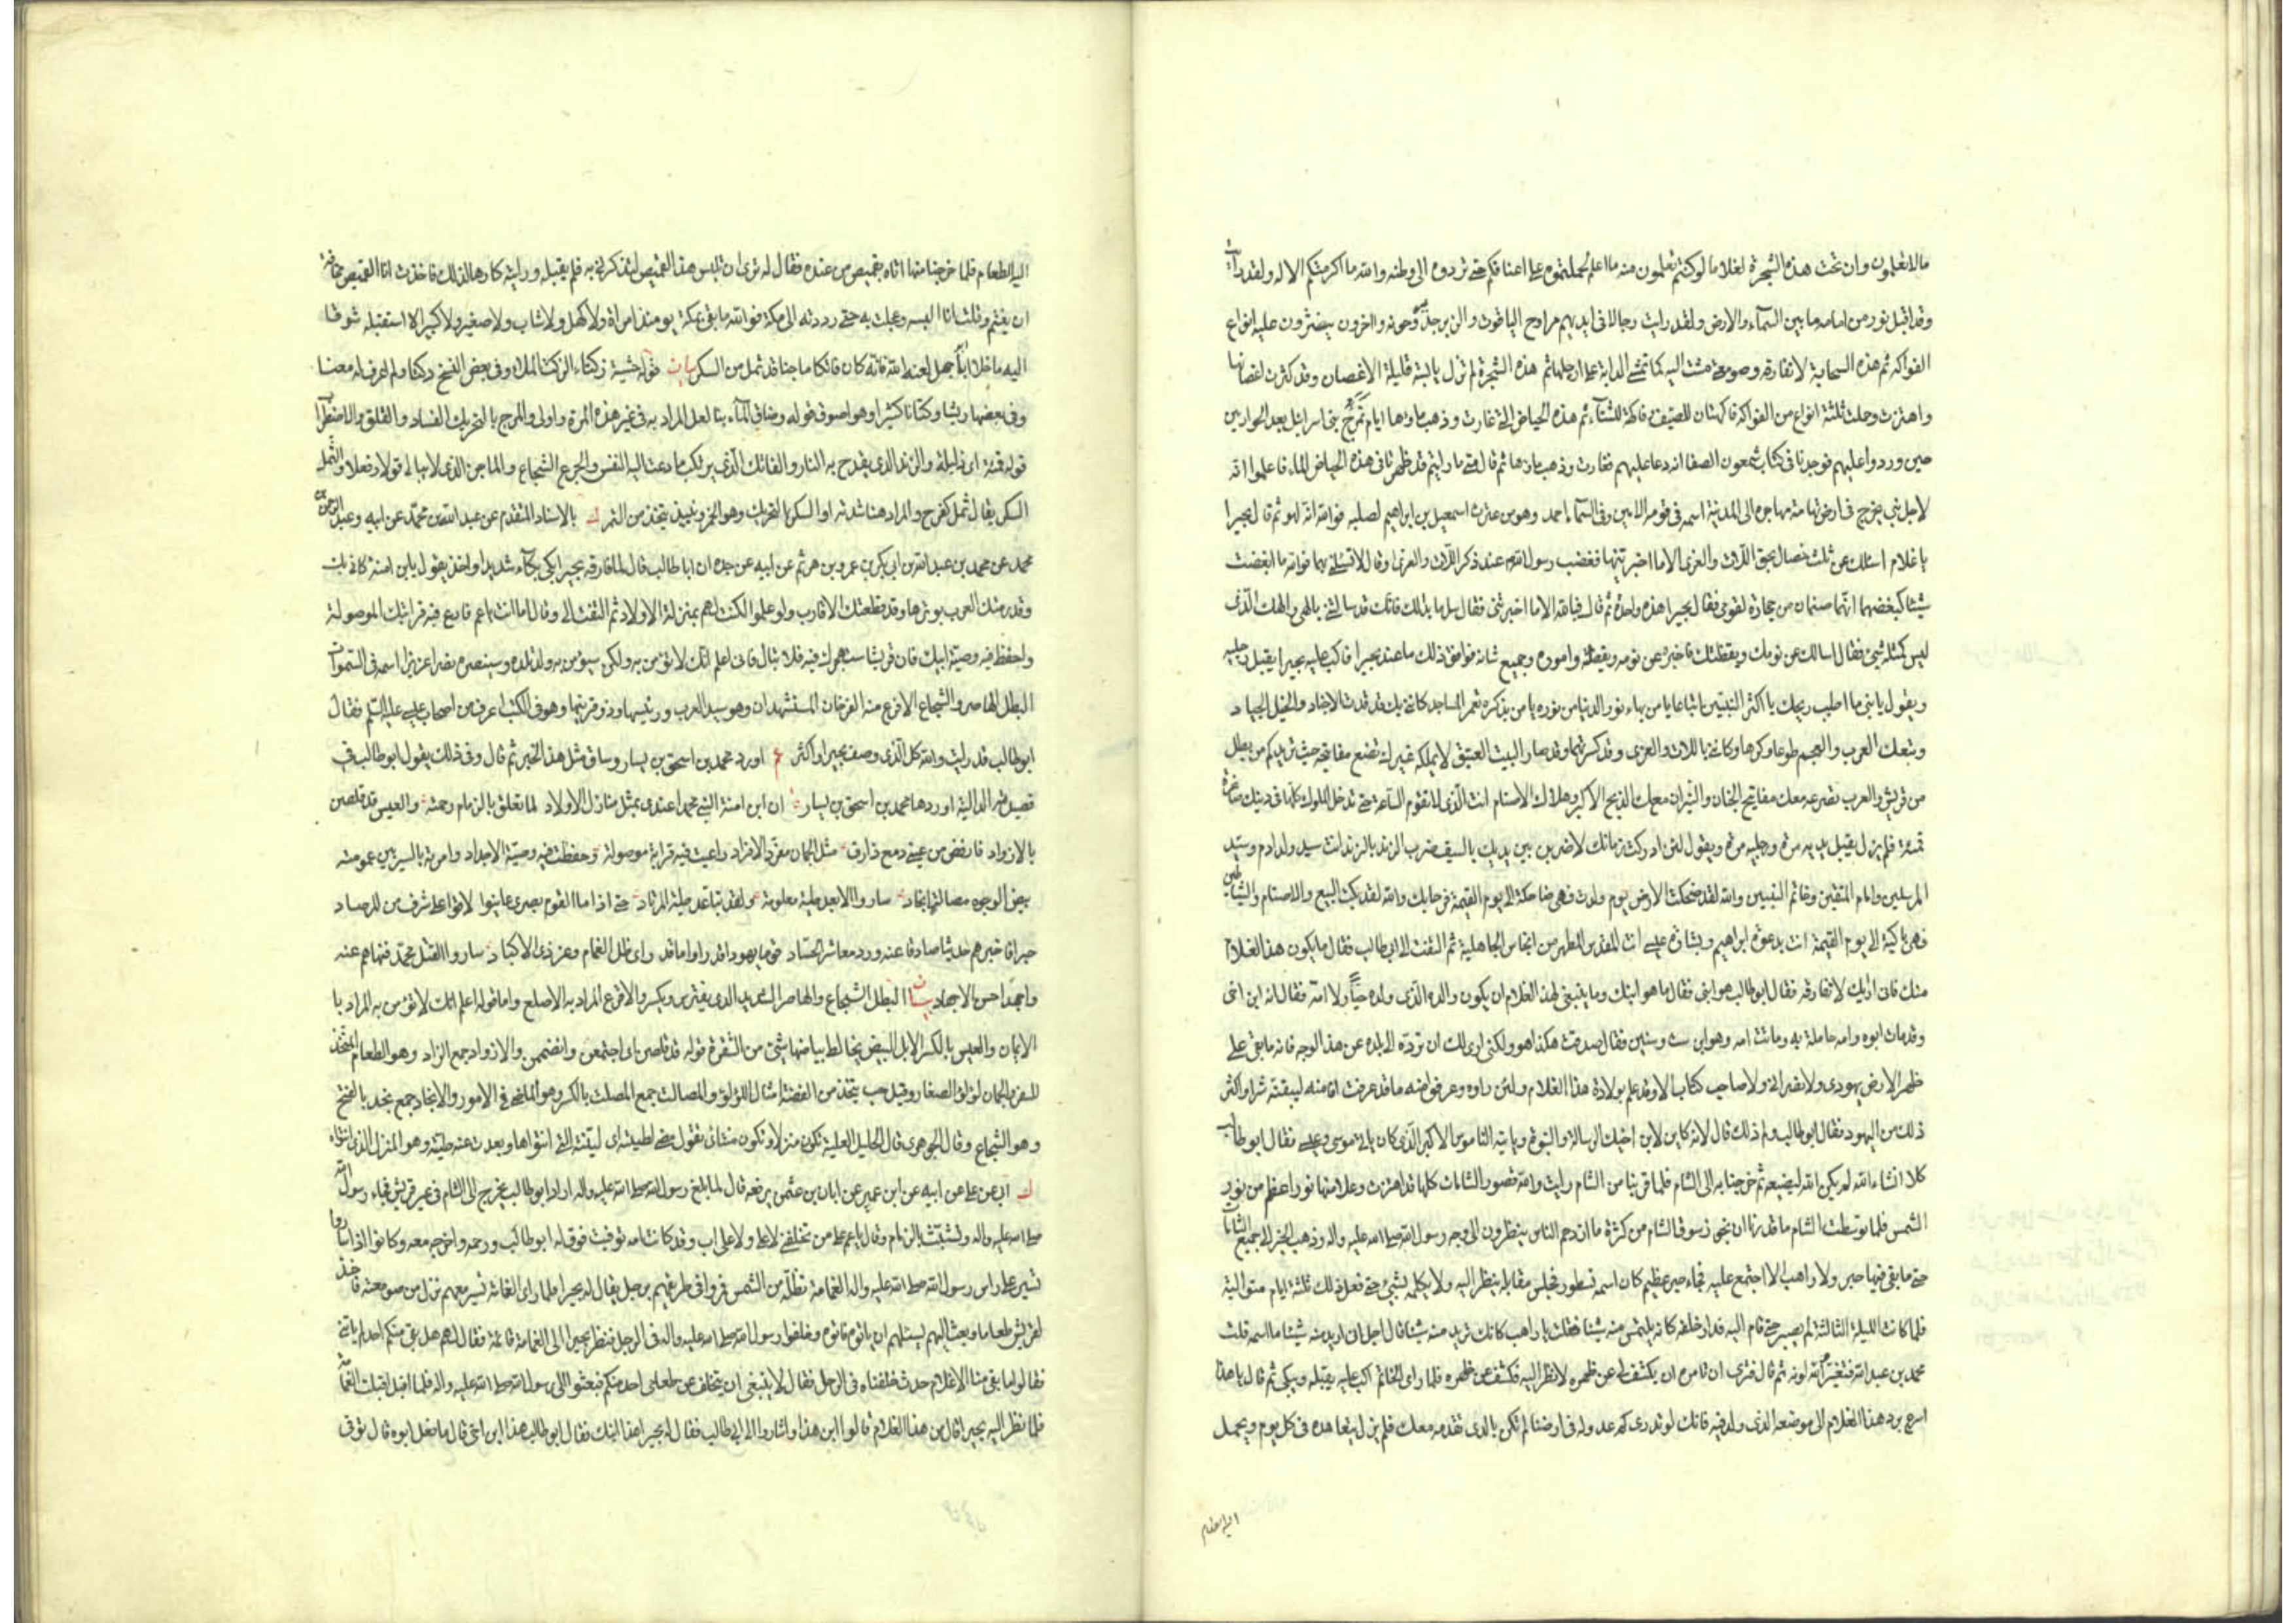 ما لا تعلمون وان تحت هذه الشجرة لغلاما لو كنتم تعلمون منه ما اعلم لحملتموه على اعناقكم حتى تردوه الى وطنه والله ما اكرمتكم الا له ولقد رايت
وقد اقبل نور من امامه ما بين السمآء والارض ولقد رايت رجالا فى ايديهم مراوح الياقوت والزبرجد يروحونه واخرون ينثرون عليه انواع
الفواكه ثم هذه السحابة لا تفارقه وصومعتى مشت اليه كما تمشى الدابة على ارجلها ثم هذه الشجرة لم تزل يابسة قليلة الاغصان وقد كثرت اغصانها
واهتزت وحملت ثلثة انواع من الفواكه فاكهتان للصيف وفاكهة للشتآء ثم هذه الحياض التى غارت وذهب ماؤها ايام تمرج بنى اسرائيل بعد الحواريين
حين وردوا عليهم فوجدنا فى كتاب شمعون الصفا انه دعا عليهم فغارت وذهب ماؤها ثم قال متى ما رايتم قد ظهر فى هذه الحياض الماء فاعلموا انه
لاجل نبى يخرج فى ارض تهامة مهاجره الى المدينة اسمه فى قومه الامين وفى السمآء احمد وهو من عترة اسمعيل بن ابراهيم لصلبه فوالله انه لهو ثم قال بحيرا
يا غلام اسئلك عن ثلث خصال بحق اللات والعزى الا ما اخبرتنيها فغضب رسول الله عند ذكر اللات والعزى وقال لا تسئلنى بهما فوالله ما ابغضت
شيئا كبغضهما انهما صنمان من حجارة لقومى فقال بحيرا هذه واحدة ثم قال فبالله الا ما اخبرتنى فقال سل ما بدا لك فانك قد سالتنى بالهى والهك الذى
ليس كمثله شئ فقال اسالك عن نومك ويقظتك فاخبره عن نومه ويقظته واموره وجميع شانه فوافق ذلك ما عند بحيرا فاكب عليه بحيرا يقبل رجليه
ويقول يا بنى ما اطيب ريحك يا اكثر النبيين اتباعا يا من بهاء نور الدنيا من نوره يا من بذكره تعمر المساجد كانى بك قد قدت الاجناد والخيل الجياد
وتبعك العرب والعجم طوعا وكرها وكانى باللات والعزى وقد كسرتهما وقد صار البيت العتيق لا يملكه غيرك تضع مفاتيحه حيث تريد كم من بطل
من قريش والعرب تصرعه معك مفاتيح الجنان والنيران معك الذبح الاكبر وهلاك الاصنام انت الذى لا تقوم الساعة حتى تدخل الملوك كلها فى دينك صاغرة
قمئة فلم يزل يقبل يديه مرة ورجليه مرة ويقول لئن ادركت زمانك لاضربن بين يديك بالسيف ضرب الزند بالزند انت سيد ولد ادم وسيد
المرسلين وامام المتقين وخاتم النبيين والله لقد ضحكت الارض يوم ولدت فهى ضاحكة الى يوم القيمة فرحا بك والله لقد بكت البيع والاصنام والشياطين
فهى باكية الى يوم القيمة انت دعوة ابراهيم وبشارة عيسى انت المقدس المطهر من انجاس الجاهلية ثم التفت الى ابى طالب فقال ما يكون هذا الغلام
منك فانى اراك لا تفارقه فقال ابو طالب هو ابنى فقال ما هو ابنك وما ينبغى لهذا الغلام ان يكون والده الذى ولده حيا ولا امه فقال انه ابن اخى
وقد مات ابوه وامه حاملة به وماتت امه وهو ابن ست سنين فقال صدقت هكذا هو ولكنى ارى لك ان ترده الى بلده عن هذا الوجه فانه ما بقى على
ظهر الارض يهودى ولا نصرانى ولا صاحب كتاب الا وقد علم بولادة هذا الغلام ولئن راوه وعرفوا منه ما قد عرفت انا منه ليبغنه شرا واكثر
ذلك من اليهود فقال ابو طالب ولم ذلك قال لانه كاين لابن اخيك الرسالة والنبوة وياتيه الناموس الاكبر الذى كان ياتى موسى وعيسى فقال ابو طالب
كلا انشاء الله لم يكن الله ليضيعه ثم خرجنا به الى الشام فلما قربنا من الشام رايت والله قصور الشامات كلها قد اهتزت وعلا منها نور اعظم من نور
الشمس فلما توسطنا الشام ما قدرنا ان نجوز سوق الشام من كثرة ما ازدحم الناس ينظرون الى وجه رسول الله صلى الله عليه واله وذهب الخبر الى جميع الشامات
حتى ما بقى فيها حبر ولا راهب الا اجتمع عليه فجاء حبر عظيم كان اسمه نسطور فجلس مقابله ينظر اليه ولا يكلمه بشئ حتى فعل ذلك ثلثة ايام متوالية
فلما كانت الليلة الثالثة لم يصبر حتى قام اليه فدار خلفه كانه يلتمس منه شيئا فقلت يا راهب كانك تريد منه شيئا قال اجل انى اريد منه شيئا ما اسمه قلت
محمد بن عبد الله فتغير والله لونه ثم قال فترى ان تامره ان يكشف لى عن ظهره لانظر اليه فكشف عن ظهره فلما راى الخاتم اكب عليه يقبله ويبكى ثم قال يا هذا
اسرع برد هذا الغلام الى موضعه الذى ولد فيه فانك لو تدرى كم عدو له فى ارضنا لم تكن بالذى تقدمه معك فلم يزل يتعاهده فى كل يوم ويحمل
اليه الطعام
اليه الطعام فلما خرجنا منها اتاه بقميص من عنده فقال له ترى ان تلبس هذا القميص لتذكرنى به فلم يقبله ورايته كارها لذلك فاخذت انا القميص مخافة
ان يغتم وقلت انا البسه وعجلت به حتى رددته الى مكة فوالله ما بقى بمكة يومئذ امراة ولا كهل ولا شاب ولا صغير ولا كبير الا استقبله شوقا
اليه ما خلا ابا جهل لعنه الله فانه كان فاتكا ماجنا قد ثمل من السكر بيان قوله حشية زكتاء الزكت الملاء وفى بعض النسخ دكتا ولم اعرف له معنا
وفى بعضها ريشا وكتانا كثيرا وهو اصوف قوله وضاق المآء بنا لعل المراد به فى غير هذه المرة واولى والمرج بالتحريك الفساد والقلق والاضطراب
قوله قمئة اى ذليلة والزند الذى يقدح به النار والفاتك الذى يرتكب ما دعت اليه النفس والجرئ الشجاع والماجن الذى لا يبالى قولا وفعلا والثمل
السكر يقال ثمل كفرح والمراد هنا شدته او السكر بالتحريك وهو الخمر ونبيذ يتخذ من التمر ك بالاسناد المتقدم عن عبد الله بن محمد عن ابيه وعبد الرحمن بن
محمد عن محمد بن عبد الله بن ابى بكر بن عمرو بن حزم عن ابيه عن جده ان ابا طالب قال لما فارقه بحيرا بكى بكآء شديدا واخذ يقول يابن امنة كانى بك
وقد رمتك العرب بوترها وقد قطعتك الاقارب ولو علموا لكنت لهم بمنزلة الاولاد ثم التفت الى وقال اما انت يا عم فارع فيه قرابتك الموصولة
واحفظ فيه وصية ابيك فان قريشا ستهجرك فيه فلا تبال فانى اعلم انك لا تؤمن به ولكن سيؤمن به ولد تلده وسينصره نصرا عزيزا اسمه فى السموات
البطل الهاصر والشجاع الاقرع منه الفرخان المستشهدان وهو سيد العرب ورئيسها وذو قرنيها وهو فى الكتب اعرف من اصحاب عيسى عليه السلم فقال
ابو طالب قد رايت والله كل الذى وصف بحيرا واكثر اورد محمد بن اسحق بن يسار وساق مثل هذا الخبر ثم قال وفى ذلك يقول ابو طالب فى
قصيدته الدالية اوردها محمد بن اسحق بن يسار ان ابن امنة النبى محمدا عندى بمثل منازل الاولاد لما تعلق بالزمام رحمته والعيس قد قلصن
بالازواد فارفض من عينى دمع ذارف مثل الجمان مفرق الافراد راعيت فيه قرابة موصولة وحفظت فيه وصية الاجداد وامرته بالسير بين عمومته
بيض الوجوه مصالت انجاد ساروا لابعد طية معلومة ولقد تباعد طية المرتاد حتى اذا ما القوم بصرى عاينوا لاقوا على شرف من المرصاد
حبرا فاخبرهم حديثا صادقا عنه ورد معاشر الحساد قوما يهودا قد راوا ما قد راى ظل الغمام وعز ذى الاكباد ساروا لقتل محمد فنهاهم عنه
واجهد احسن الاجهاد بيان البطل الشجاع والهاصر الشديد الذى يفترس ويكسر والاقرع المراد به الاصلع واما قوله اعلم انك لا تؤمن به المراد با
الايمان والعيس بالكسر الابل البيض يخالط بياضها شئ من الشقرة قوله قد قلصن اى اجتمعن وانضممن والازواد جمع الزاد وهو الطعام المتخذ
للسفر والجمان لؤلؤ الصغار وقيل حب يتخذ من الفضة امثال اللؤلؤ والمصالت جمع المصلت بالكسر وهو الماضى فى الامور والانجاد جمع نجد بالفتح
وهو الشجاع وقال الجوهرى قال الخليل الطية تكون منزلا وتكون منتأى تقول مضى لطيته اى لنيته التى انتواها وبعدت عنه طيته وهو المنزل الذى انتواه
ك ابى عن على عن ابيه عن ابن عمير عن ابان بن عثمن يرفعه قال لما بلغ رسول الله صلى الله عليه واله اراد ابو طالب يخرج الى الشام فى عير قريش فجاء رسول الله
صلى الله عليه واله وتشبث بالزمام وقال يا عم على من تخلفنى لا على ام ولا على اب وقد كانت امه توفيت فرق له ابو طالب ورحمه واخرجه معه وكانوا اذا ساروا
تسير على راس رسول الله صلى الله عليه واله الغمامة تظله من الشمس فمروا فى طريقهم برجل يقال له بحيرا فلما راى الغمامة تسير معهم نزل من صومعته فاتخذ
لقريش طعاما وبعث اليهم يسئلهم ان ياتوه فاتوه وخلفوا رسول الله صلى الله عليه واله فى الرحل فنظر بحيرا الى الغمامة قائمة فقال لهم هل بقى منكم احد لم ياتنى
فقالوا ما بقى منا الا غلام حدث خلفناه فى الرحل فقال لا ينبغى ان يتخلف عن طعامى احد منكم فبعثوا الى رسول الله صلى الله عليه واله فلما اقبل اقبلت الغمامة
فلما نظر اليه بحيرا قال من هذا الغلام قالوا ابن هذا واشاروا الى ابى طالب فقال له بحيرا هذا ابنك فقال ابو طالب هذا ابن اخى قال ما فعل ابوه قال توفى